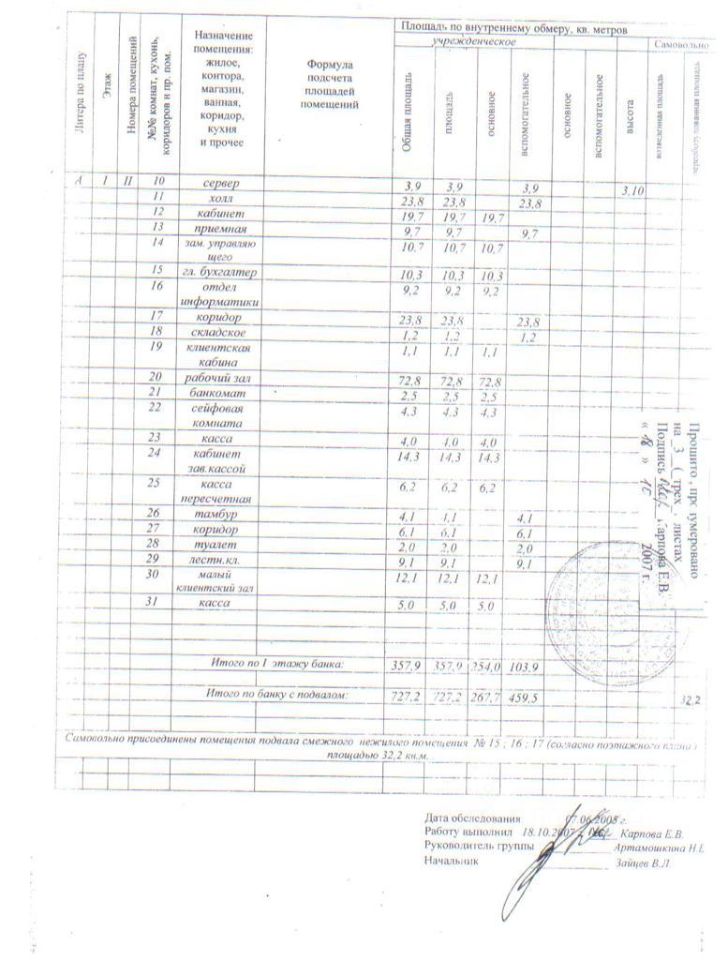 Площадь по внутреннему обмеру, кв. метров
учрежденческое
Самовольно
Литера по плану
Этаж
Номера помещений
№№ комнат, кухонь, коридоров и пр. пом.
Назначение
помещения:
жилое,
контора,
магазин,
ванная,
коридор,
кухня
и прочее
Формула
подсчета
площадей
помещений
Общая площадь
площадь
основное
вспомогательное
основное
вспомогательное
высота
возведенная площадь
переоборудованная площадь
А I II 10 сервер 3,9 3,9 3,9 3,10
11 холл 23,8 23,8 23,8
12 кабинет 19,7 19,7 19,7
13 приемная 9,7 9,7 9,7
14 зам. управляю
щего 10,7 10,7 10,7
15 гл. бухгалтер 10,3 10,3 10,3
16 отдел
информатики 9,2 9,2 9,2
17 коридор 23,8 23,8 23,8
18 складское 1,2 1,2 1,2
19 клиентская
кабина 1,1 1,1 1,1
20 рабочий зал 72,8 72,8 72,8
21 банкомат 2,5 2,5 2,5
22 сейфовая
комната 4,3 4,3 4,3
23 касса 4,0 4,0 4,0
24 кабинет
зав.кассой 14,3 14,3 14,3
25 касса
пересчетная 6,2 6,2 6,2
26 тамбур 4,1 4,1 4,1
27 коридор 6,1 6,1 6,1
28 туалет 2,0 2,0 2,0
29 лестн.кл. 9,1 9,1 9,1
30 малый
клиентский зал 12,1 12,1 12,1
31 касса 5,0 5,0 5,0
Итого по I этажу банка: 357,9 357,9 254,0 103,9
Итого по банку с подвалом: 727,2 727,2 267,7 459,5 32,2
Самовольно присоединены помещения подвала смежного нежилого помещения № 15 ; 16 ; 17 (согласно поэтажного плана)
площадью 32,2 кв.м.
Прошито , пронумеровано
на 3 ( трех ) листах
Подпись Карпова Е.В.
« 18 » 10 2007 г.
Дата обследования 07.06.2005 г.
Работу выполнил 18.10.2007 Карпова Е.В.
Руководитель группы Артамошкина Н.Е
Начальник Зайцев В.Л.